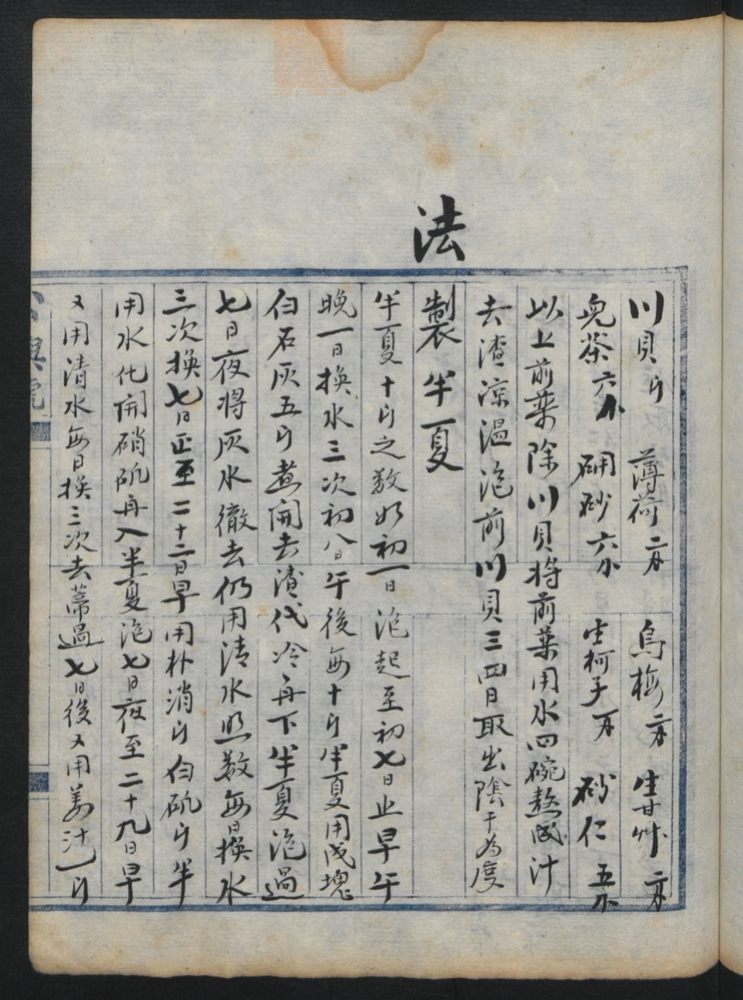 法
川貝 斤 薄荷 二両 烏梅 二両 生甘艸 二両
兒茶 六分 硼砂 六分 生柯子 一両 砂仁 五分
以上前藥除川貝将前藥用水四碗熬成汁
去渣涼温泡前川貝三四日取出陰干為度
製半夏
半夏十斤之数如初一日泡起至初七日止早午
晚一日换水三次初八日午後每十斤半夏用成塊
白石灰五斤煮開去渣代冷再下半夏泡過
七日夜将灰水徹去仍用清水照数每日换水
三次换七日止至二十二日早用朴消斤白矾斤半
用水化開硝矾再入半夏泡七日夜至二十九日早
又用清水每日换三次去薷過七日後又用姜汁一斤
號